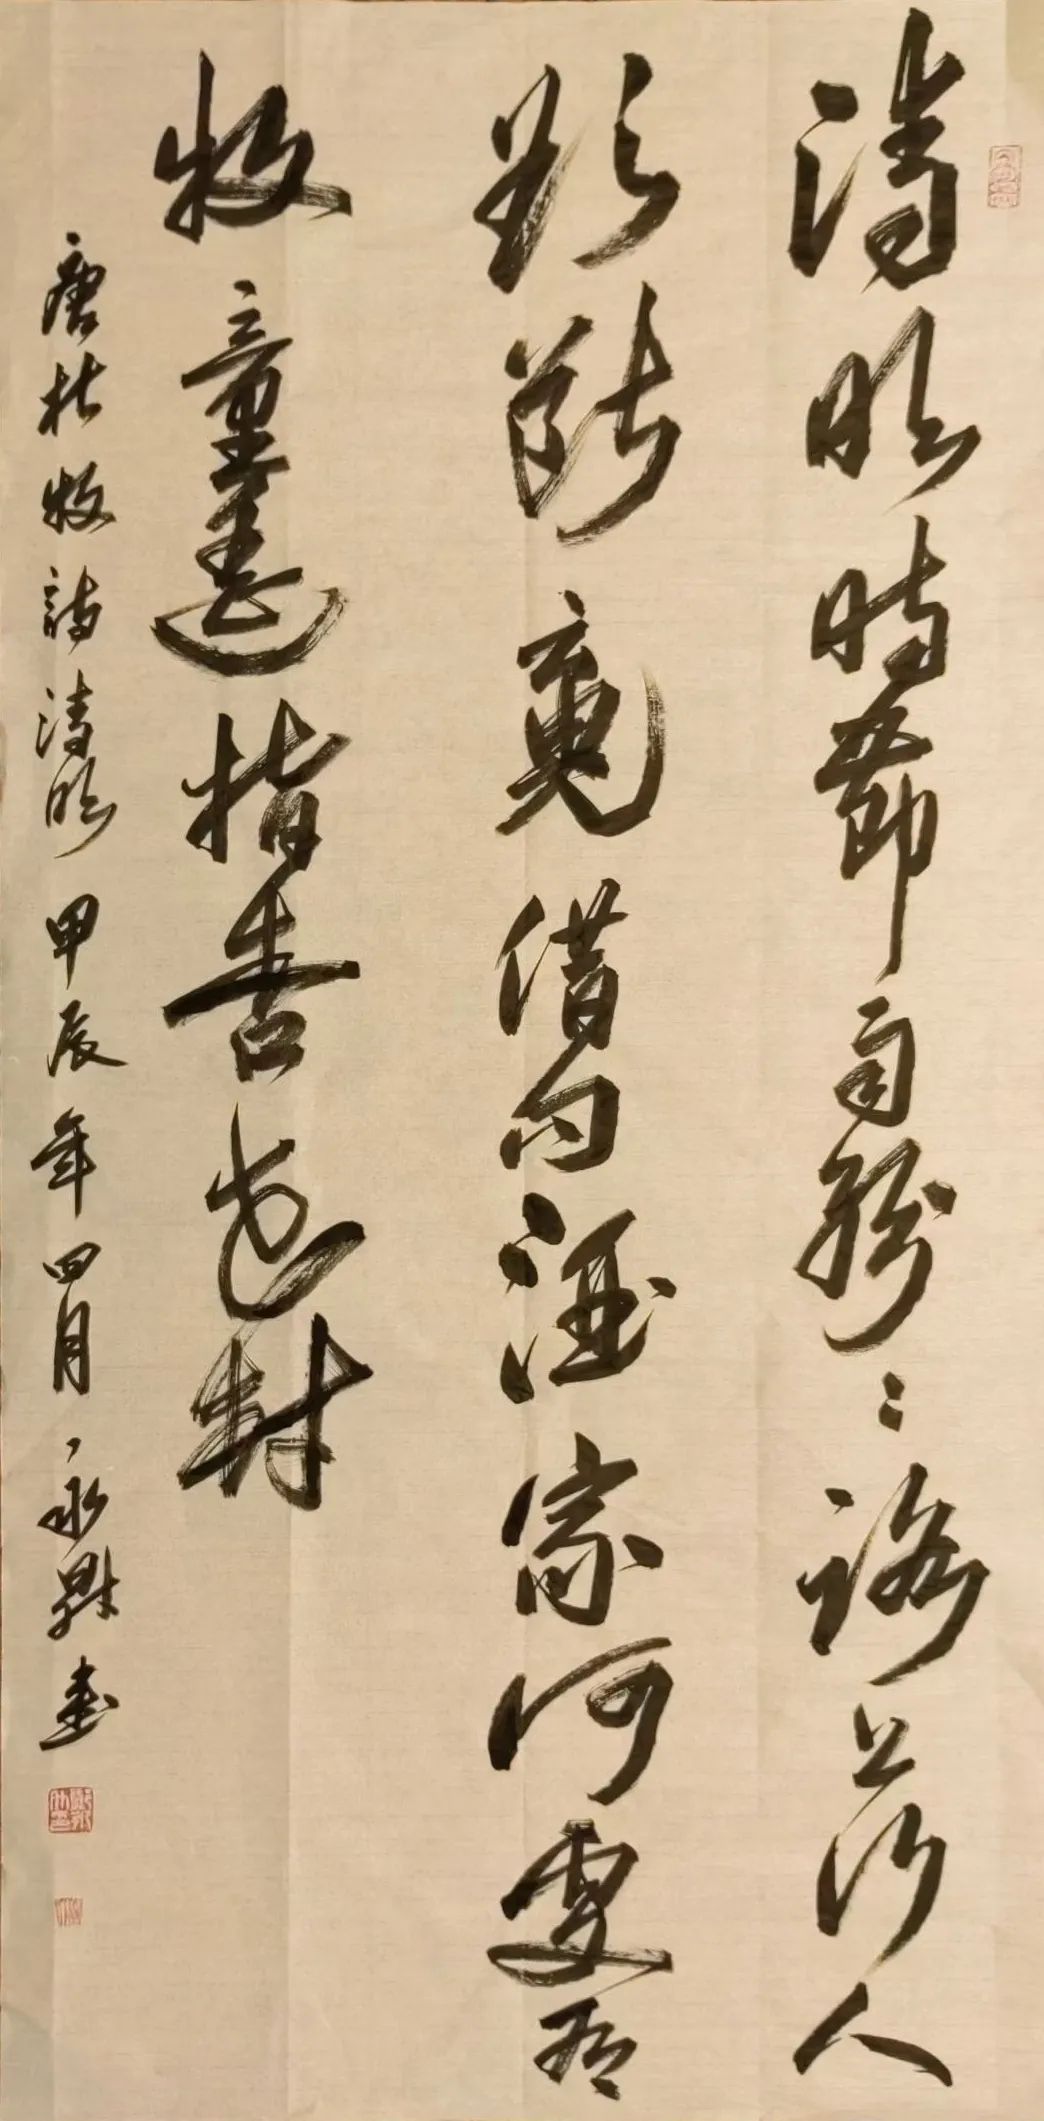 清明時節雨紛〻路上行人
欲斷魂借問酒家何處有
牧童遥指杏花村
唐杜牧詩清明 甲辰年四月 永書